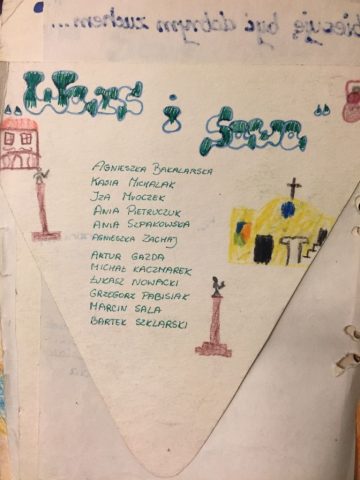 biecuję być dobrym zuchem...
„Wars i Sawa”
AGNIESZKA BAKALARSKA
KASIA MICHALAK
IZA MROCZEK
ANIA PIETRUCZUK
ANIA SZPAKOWSKA
AGNIESZKA ZACHAJ
ARTUR GAZDA
MICHAŁ KACZMAREK
ŁUKASZ NOWACKI
GRZEGORZ PABISIAK
MARCIN SALA
BARTEK SZKLARSKI